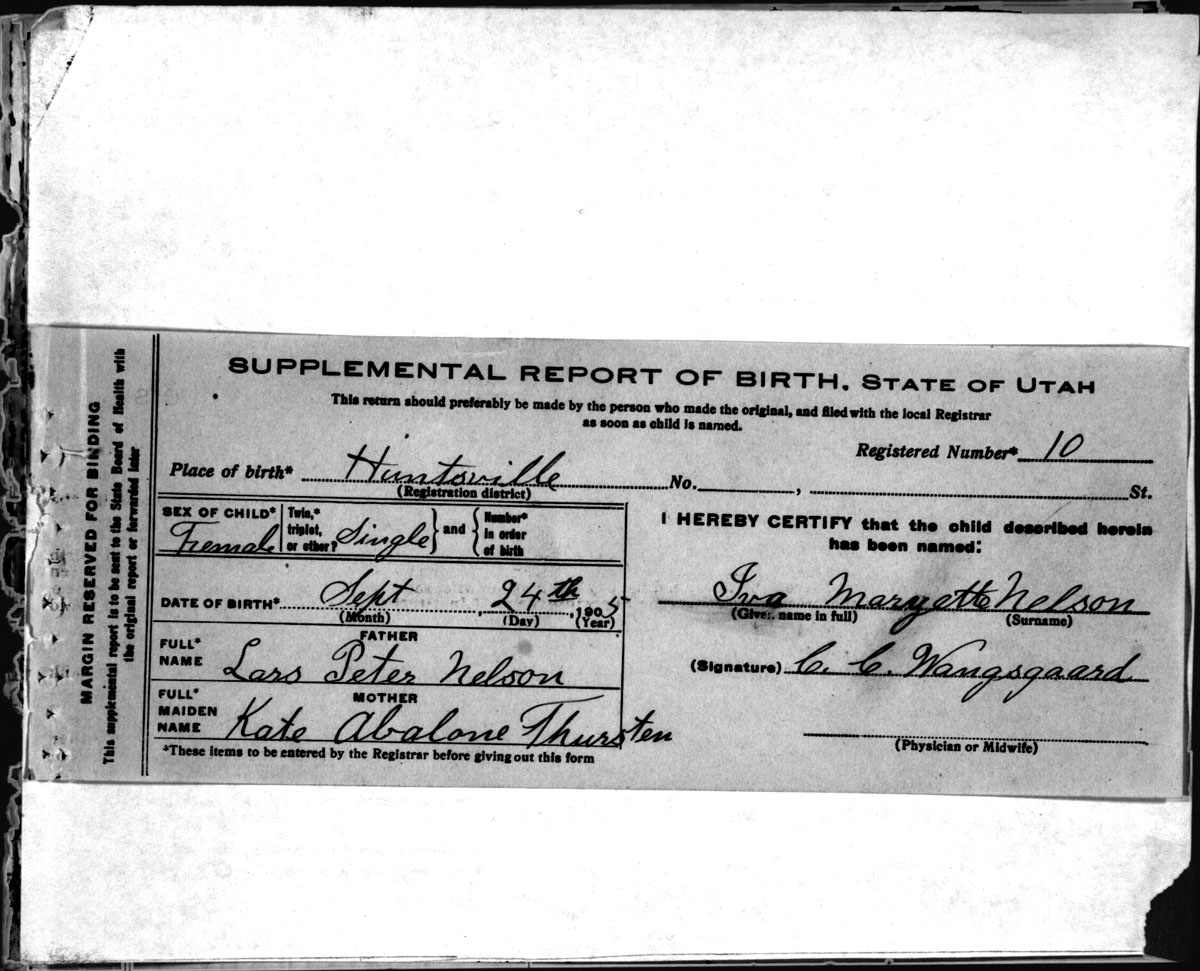 SUPPLEMENTAL REPORT OF BIRTH. STATE OF UTAH
This return should preferably be made by the person who made the original, and filed with the local Registrar
as soon as child is named.
Registered Number* 10
Place of birth* Huntsville No. , St.
(Registration district)
SEX OF CHILD* Female
Twin,* triplet, or other? Single } and { Number* in order of birth
DATE OF BIRTH* Sept , 24th , 1905
(Month) (Day) (Year)
FATHER
FULL* NAME Lars Peter Nelson
MOTHER
FULL* MAIDEN NAME Kate Abalone Thursten
*These items to be entered by the Registrar before giving out this form
I HEREBY CERTIFY that the child described herein
has been named:
Iva Maryette Nelson
(Given name in full) (Surname)
(Signature) C. C. Wangsgaard
(Physician or Midwife)
MARGIN RESERVED FOR BINDING
This supplemental report is to be sent to the State Board of Health with
the original report or forwarded later